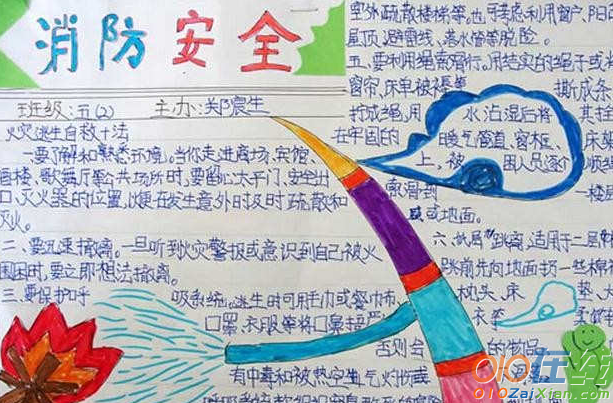 消防安全
班级:五(2) 主办:郑震生
火灾逃生自救十法
一要了解和熟悉环境。当你走进商场、宾馆
楼、歌舞厅等公共场所时,要留心太平门、安全出
口、灭火器的位置,以便在发生意外时及时疏散和
灭火。
二、要迅速撤离。一旦听到火灾警报或意识到自己被火
围困时,要立即想法撤离。
三、要保护呼
吸系统。逃生时可用毛巾或餐巾布、
口罩、衣服等将口鼻捂严
否则会
有中毒和被热空气灼伤
室外疏散楼梯等。也可考虑利用窗户、阳台
屋顶、避雷线、落水管等脱险。
五、要利用绳索滑行。用结实的绳子或
窗帘、床单被褥等 撕成条
拧成绳,用 水沾湿后将 其拴
在牢固的 暖气管道、窗框、床
上,被 困人员逐个
索滑到
或地面。
六、 跳离,适用于二层
跳前先向地面扔一些棉被
枕头、床 垫、
衣
的做
010在线
010ZaiXian.com